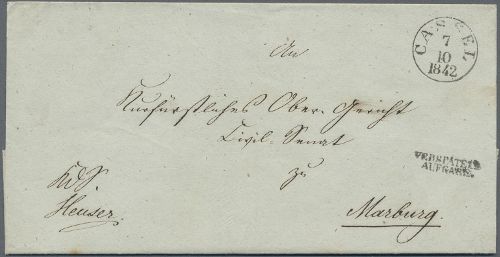 CASSEL
7
10
1842
An
Kurfürstliches Ober-Gericht
Civil-Senat
zu
VERSPÄTETE
AUFGABE.
KdS
Heuser.
Marburg.